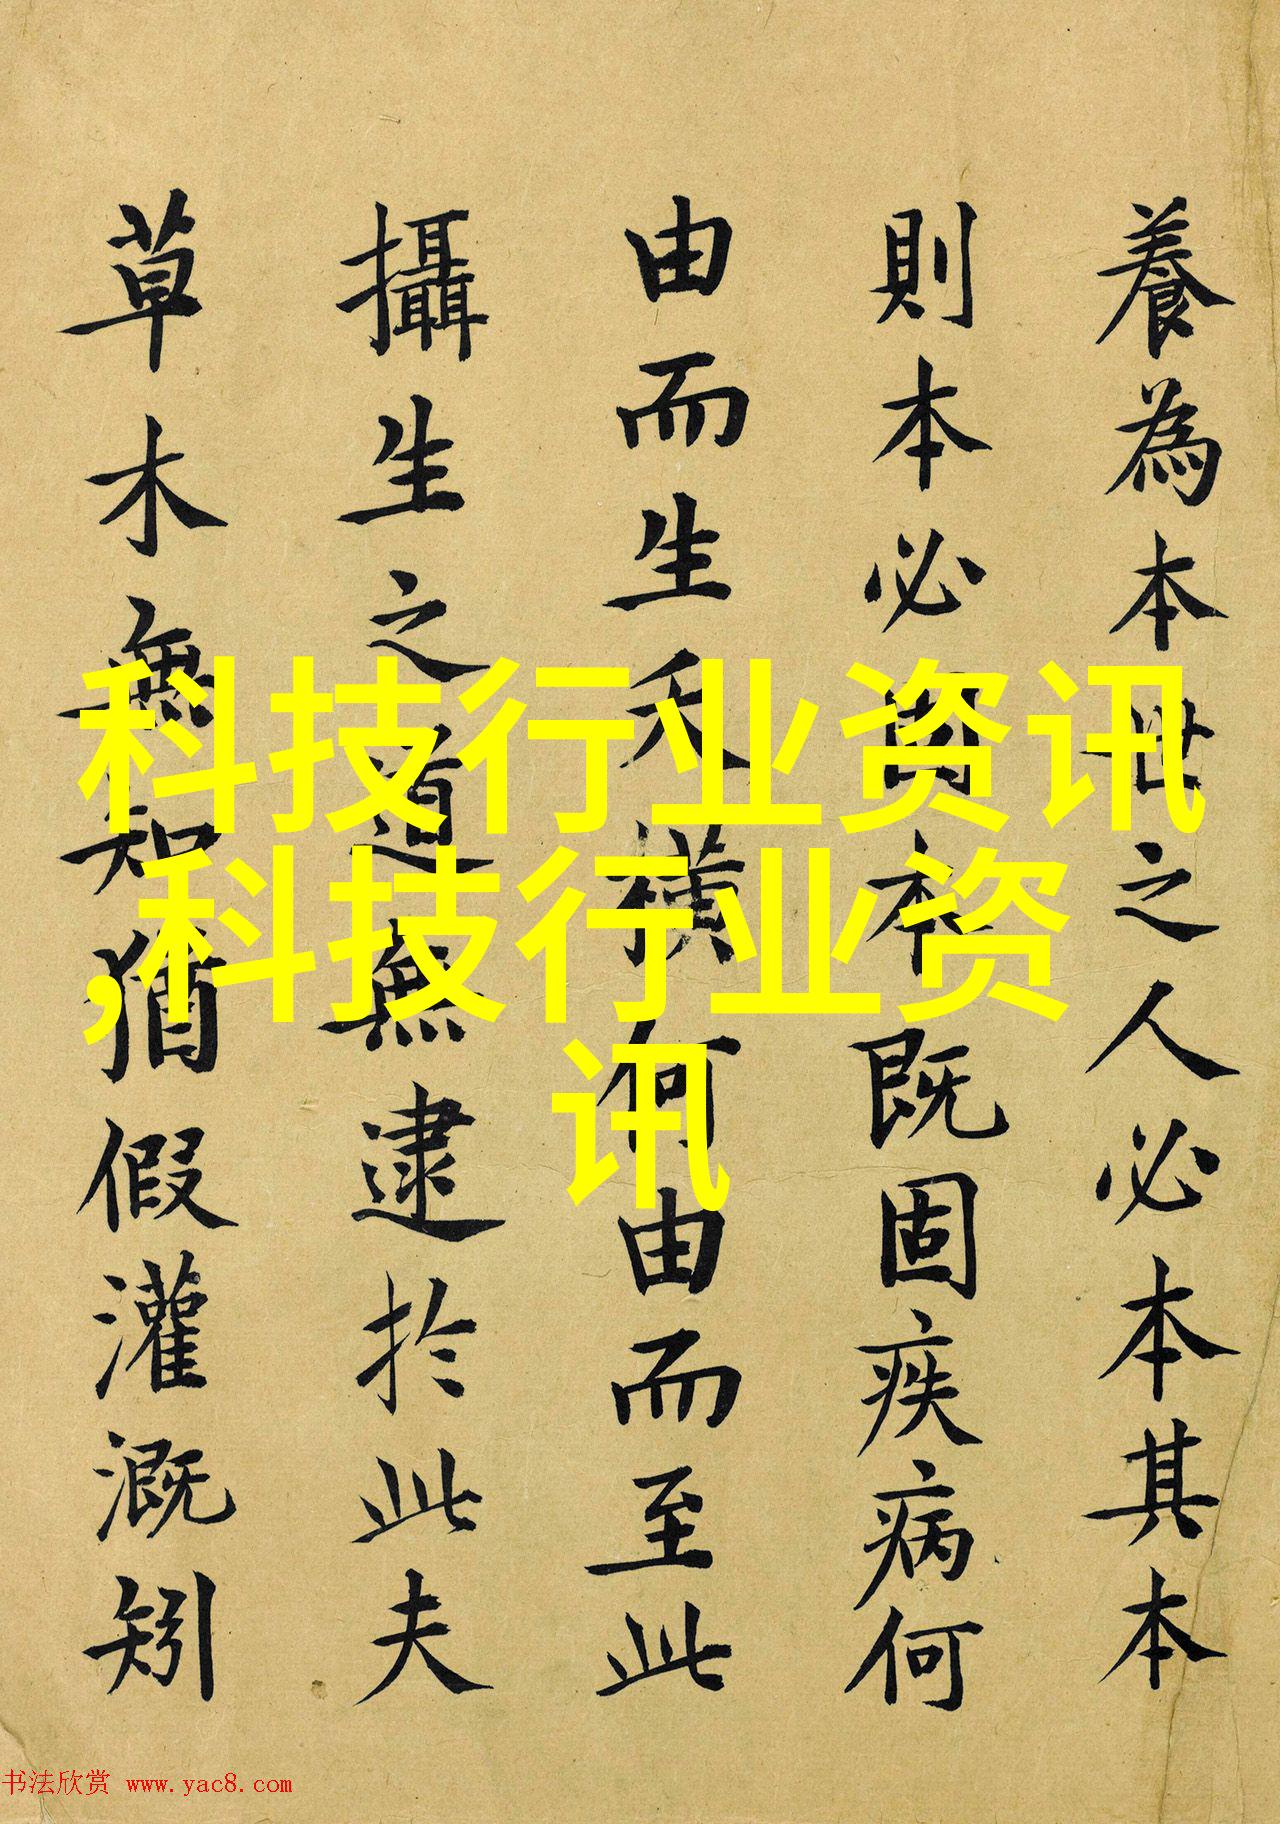 養為本世之人必本其本
則本必固本既固疾病何
由而生夭橫何由而至此
攝生之道無逮於此夫
草木無知猶假灌溉矧
科技行业资讯
,科技行业资
讯
书法欣赏 www.yac8.com